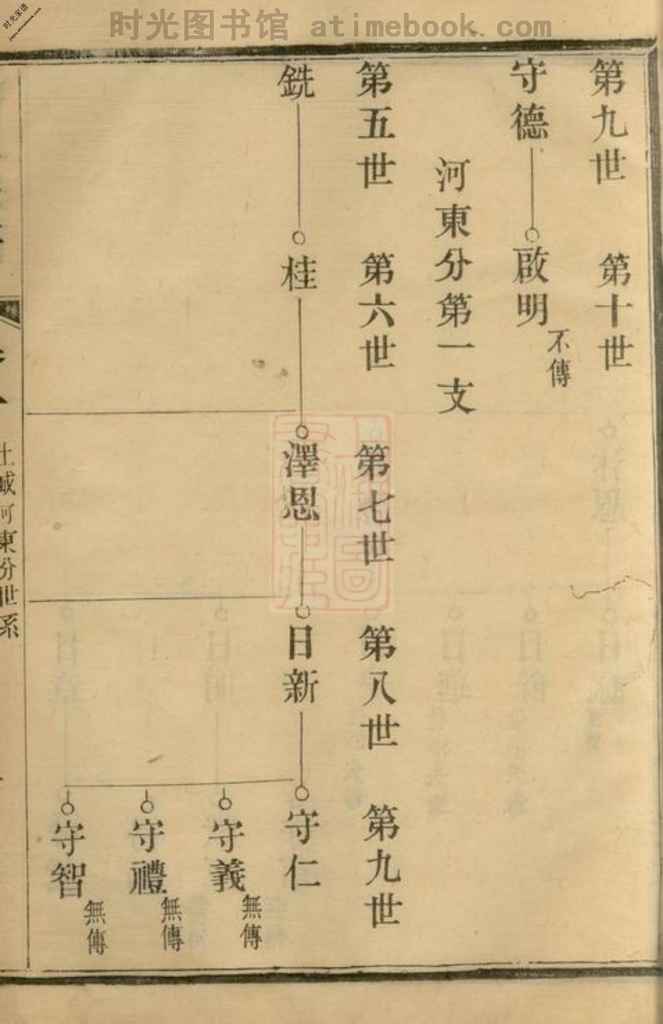 时光图书馆 atimebook.com
第九世 第十世
守德 啟明 不傳
河東分第一支
第五世 第六世 第七世 第八世 第九世
銑 桂 澤恩 日新 守仁
守義 無傳
守禮 無傳
守智 無傳
土城河東分世系